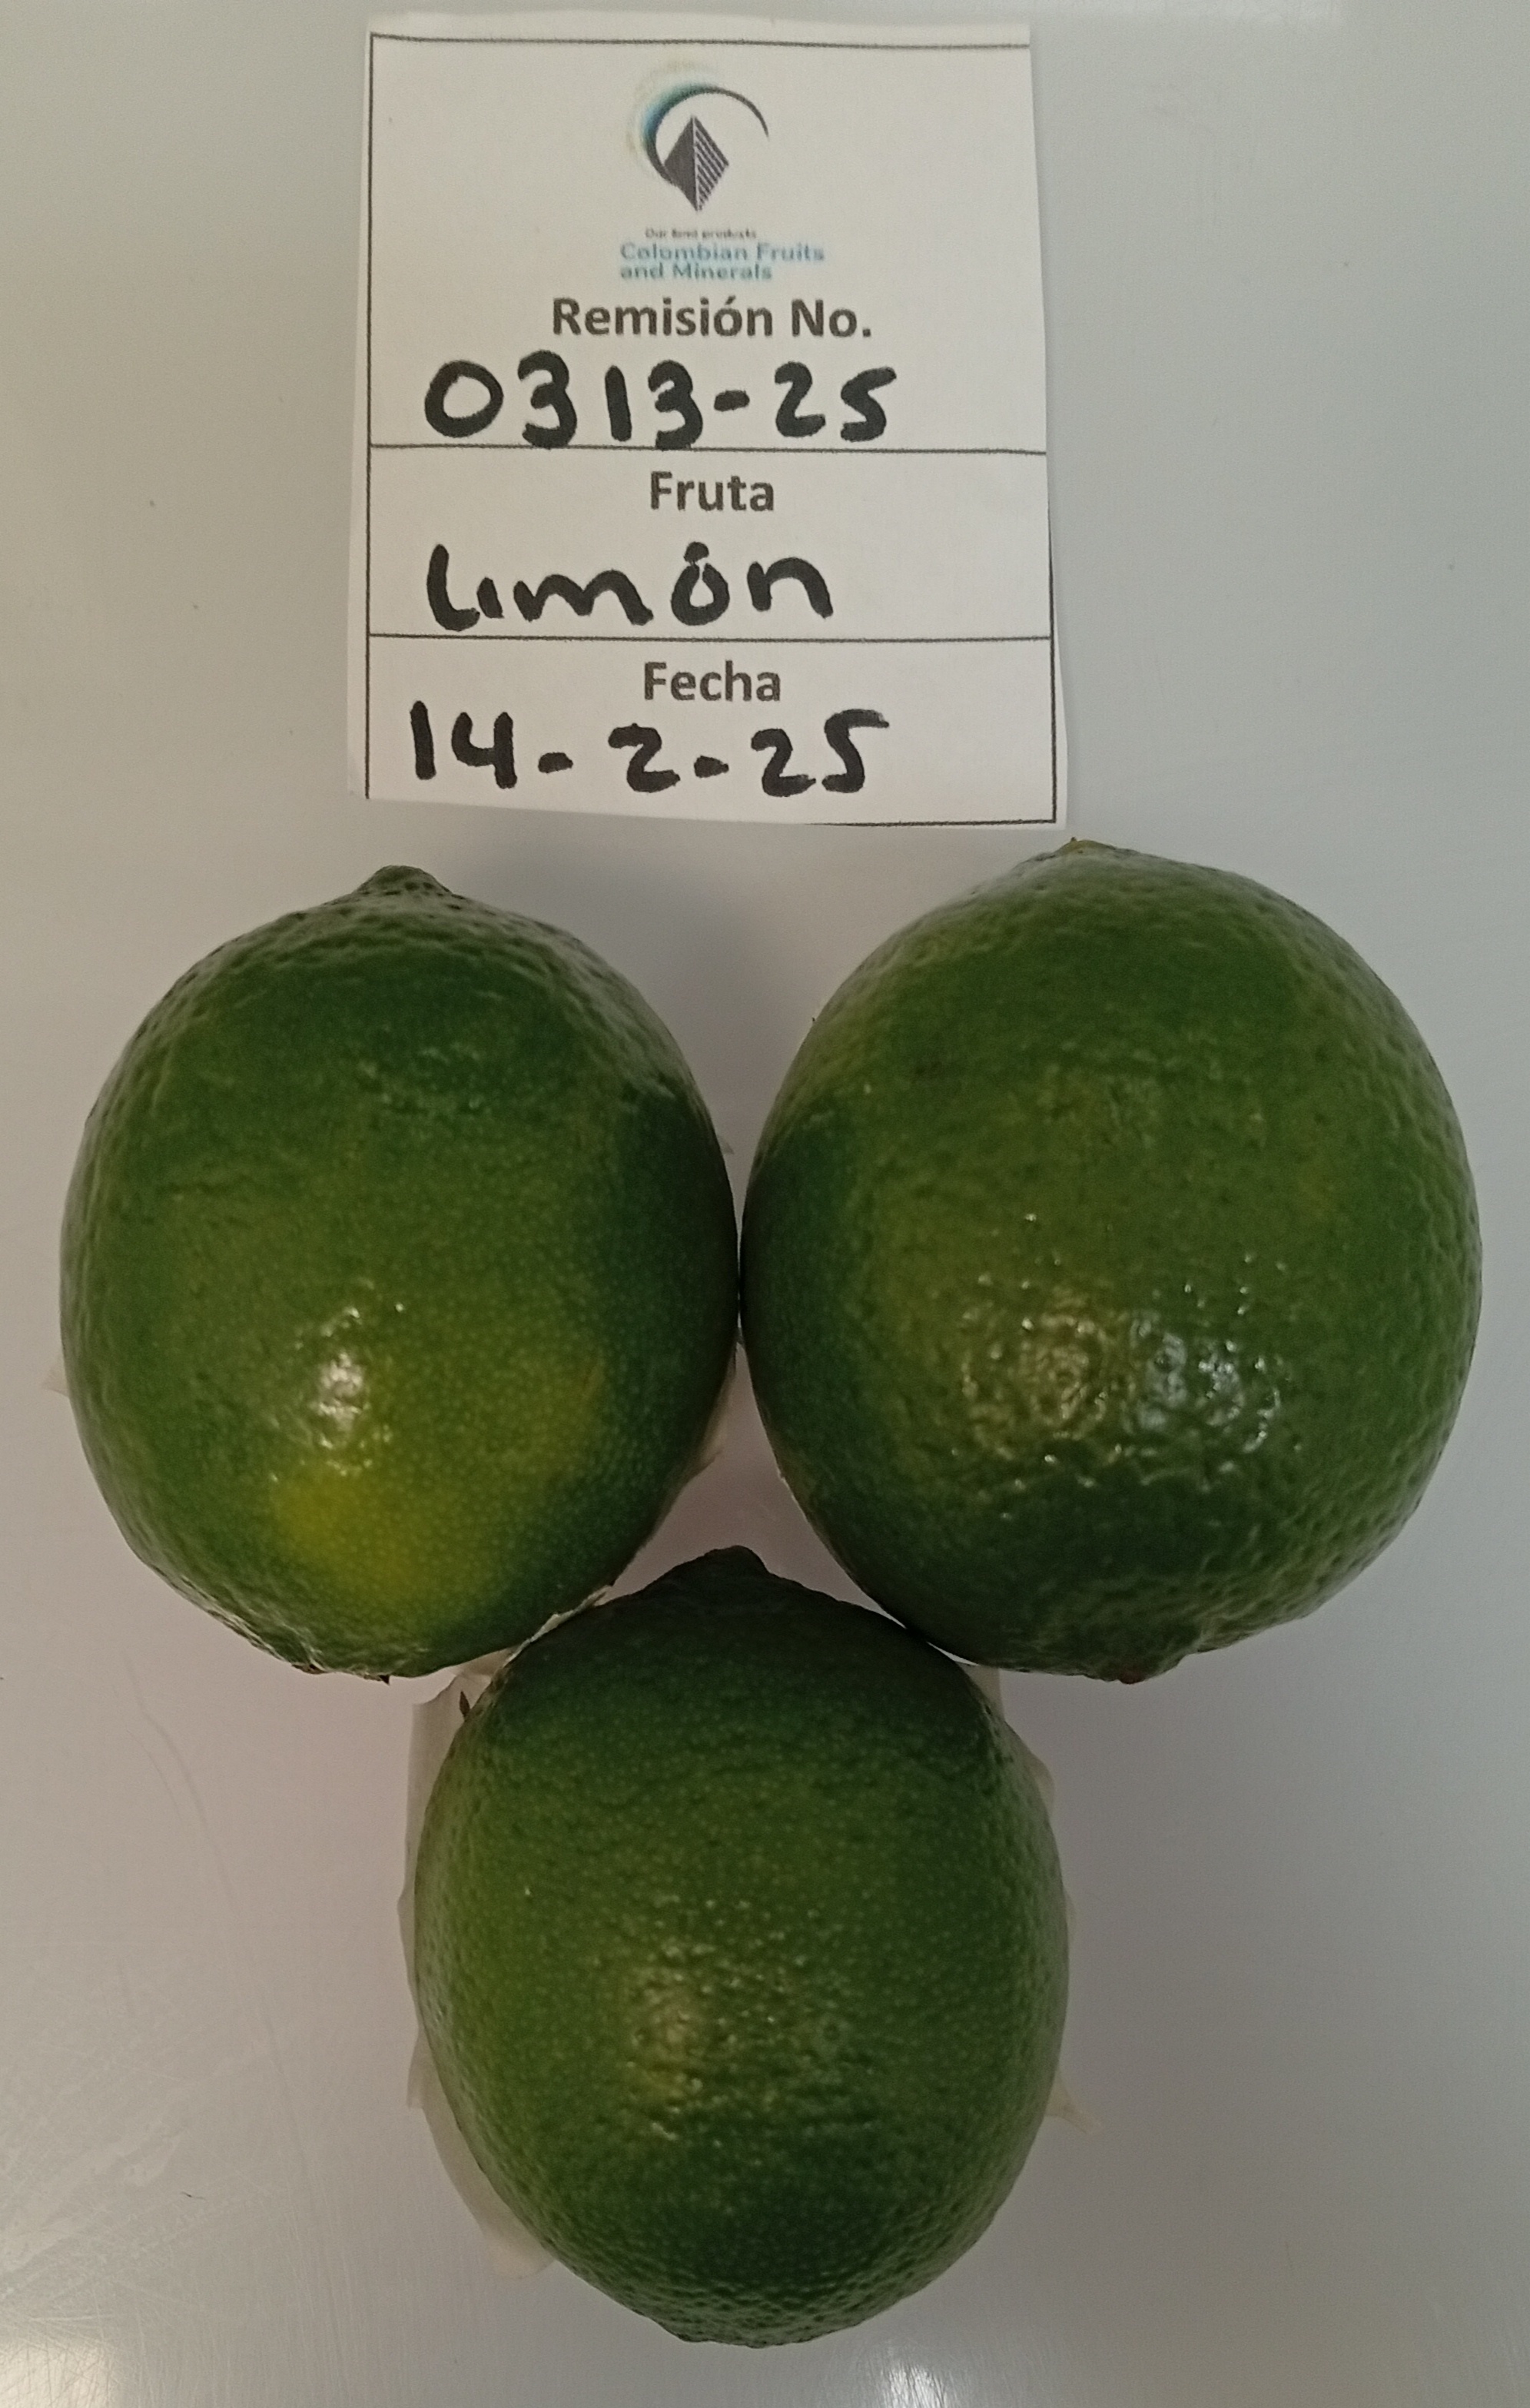 Our land products
Colombian Fruits
and Minerals
Remisión No.
0313-25
Fruta
Limón
Fecha
14-2-25